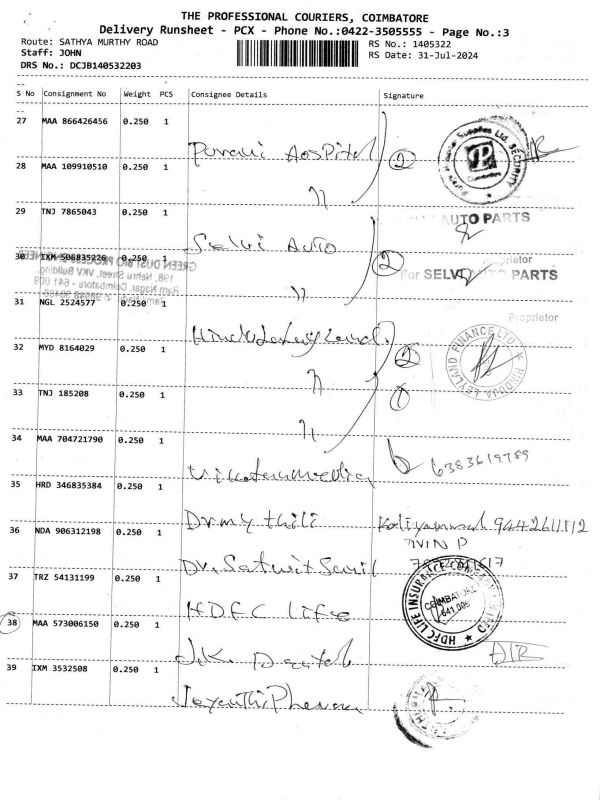 THE PROFESSIONAL COURIERS, COIMBATORE
Delivery Runsheet - PCX - Phone No.:0422-3505555 - Page No.:3
Route: SATHYA MURTHY ROAD
RS No.: 1405322
Staff: JOHN
RS Date: 31-Jul-2024
DRS No.: DCJB140532203
S No Consignment No Weight PCS Consignee Details Signature
27 MAA 866426456 0.250 1
Hospital 2
28 MAA 109910510 0.250 1
29 TNJ 7865043 0.250 1
AUTO PARTS
Selvi Auto 2
30 IXM 506835226 0.250 1
Proprietor
For SELVI AUTO PARTS
GREEN DUST BIO PROCESS
198, Nehru Street, VKV Building,
Ram Nagar, Coimbatore - 641 009
31 NGL 2524577 0.250 1
Proprietor
HINDUJA LEYLAND FINANCE LTD
32 MYD 8164029 0.250 1
2
33 TNJ 185208 0.250 1
1
34 MAA 704721790 0.250 1
6383619789
Vikatan media
35 HRD 346835384 0.250 1
Dr my thili 9442611812
36 NDA 906312198 0.250 1
Dr. Satwit
37 TRZ 54131199 0.250 1
HDFC Life
HDFC LIFE INSURANCE COMPANY LIMITED
COIMBATORE
38 MAA 573006150 0.250 1
J.K.
39 IXM 3532508 0.250 1
Jeyanthi